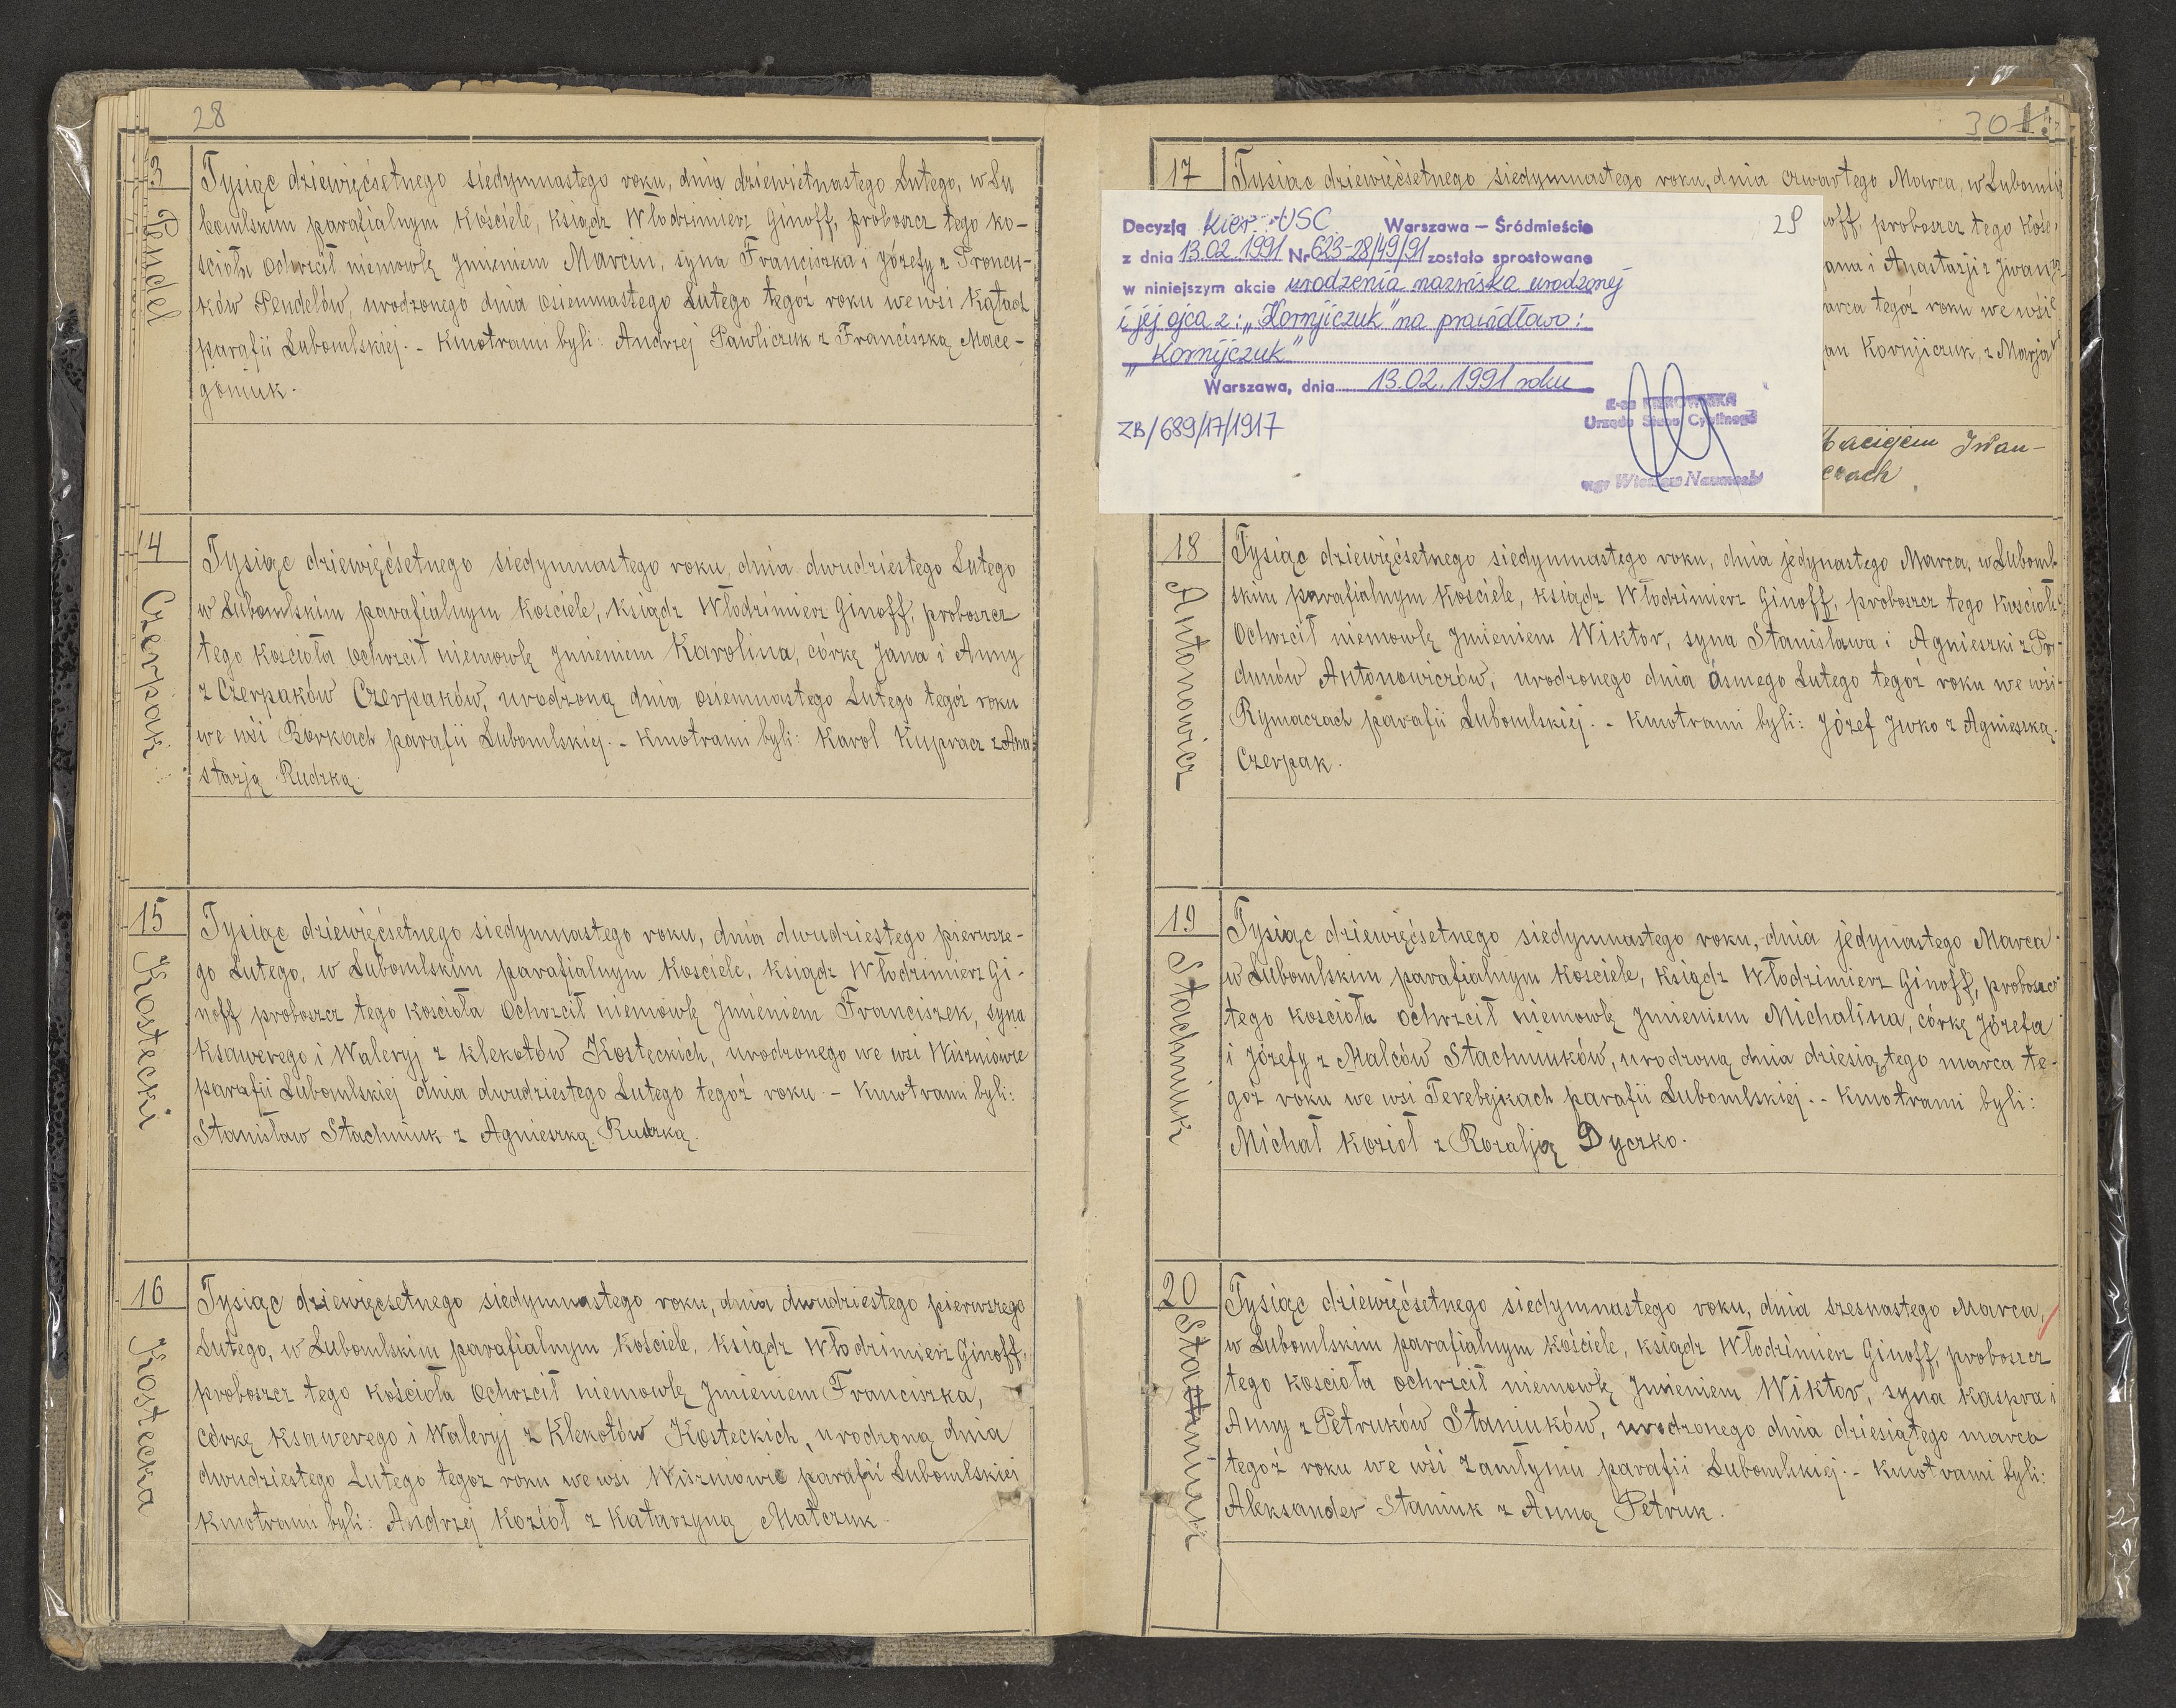 28
3
Pendel
Tysiąc dziewięćsetnego siedymnastego roku, dnia dziewietnastego Lutego, w Lu
bomlskim parafialnym Kościele, ksiądz Włodzimierz Ginoff, proboszcz tego ko-
ścioła ochrzcił niemowlę jmieniem Marcin, syna Franciszka i Józefy z Francis-
ków Pendelów, urodzonego dnia osiemnastego Lutego tegoż roku we wsi Kątach
parafii Lubomlskiej. - Kmotrami byli: Andrzej Pawliczuk z Franciszką Mace-
goniuk.
14
Czerpak
Tysiąc dziewięćsetnego siedymnastego roku, dnia dwudziestego Lutego
w Lubomlskim parafialnym Kościele, ksiądz Włodzimierz Ginoff, proboszcz
tego Kościoła ochrzcił niemowlę jmieniem Karolina, córkę Jana i Anny
z Czerpaków Czerpaków, urodzoną dnia osiemnastego Lutego tegoż roku
we wsi Borkach parafii Lubomlskiej. - Kmotrami byli: Karol Kupracz z Ana
starją Rudzką.
15
Kostecki
Tysiąc dziewięćsetnego siedymnastego roku, dnia dwudziestego pierwsze-
go Lutego, w Lubomlskim parafialnym Kościele, ksiądz Włodzimierz Gi-
noff proboszcz tego Kościoła ochrzcił niemowlę jmieniem Franciszek, syna
Ksawerego i Waleryj z Klekotów Kosteckich, urodzonego we wsi Wiszniowie
parafii Lubomlskiej dnia dwudziestego Lutego tegoż roku - Kmotrami byli:
Stanisław Stachniuk z Agnieszką Rudzką.
16
Kostecka
Tysiąc dziewięćsetnego siedymnastego roku, dnia dwudziestego pierwszego
Lutego, w Lubomlskim parafialnym Kościele, ksiądz Włodzimierz Ginoff,
proboszcz tego Kościoła ochrzcił niemowlę jmieniem Franciszka,
córkę Ksawerego i Waleryj z Klekotów Kosteckich, urodzoną dnia
dwudziestego Lutego tegoż roku we wsi Wiszniowie parafii Lubomlskiej
Kmotrami byli: Andrzej Kozioł z Katarzyną Matczuk.
30
17
Tysiąc dziewięćsetnego siedymnastego roku, dnia czwartego Marca, w Lubomls
noff, proboszcz tego Koś
ana i Anastazji z Jwan
arca tegoż roku we wsi
an Kornijczuk, z Marją
Maciejem Iwan-
czach
29
Decyzją Kier. USC Warszawa – Śródmieście
z dnia 13.02.1991 Nr 623-28/49/91 zostało sprostowane
w niniejszym akcie urodzenia nazwiska urodzonej
i jej ojca z: „Kornjiczuk" na prawidłowo:
„Kornijczuk"
Warszawa, dnia 13.02.1991 roku
Z-ca KIEROWNIKA
Urzędu Stanu Cywilnego
mgr Wiesław Naumczk
ZB/689/17/1917
18
Antonowicz
Tysiąc dziewięćsetnego siedymnastego roku, dnia jedynastego Marca, w Luboml-
skim parafialnym Kościele, ksiądz Włodzimierz Ginoff, proboszcz tego Kościoła
ochrzcił niemowlę jmieniem Wiktor, syna Stanisława i Agnieszki z Pry-
dunów Antonowiczów, urodzonego dnia ósmego Lutego tegoż roku we wsi
Rymaczach parafii Lubomlskiej. - Kmotrami byli: Józef Jwko z Agnieszką
Czerpak.
19
Stachniuk
Tysiąc dziewięćsetnego siedymnastego roku, dnia jedynastego Marca
w Lubomlskim parafialnym Kościele, ksiądz Włodzimierz Ginoff, proboszcz
tego Kościoła ochrzcił niemowlę jmieniem Michalina, córkę Józefa
i Józefy z Malców Stachniuków, urodzoną dnia dziesiątego marca te-
goż roku we wsi Terebejkach parafii Lubomlskiej. - Kmotrami byli:
Michał Kozioł z Rozalją Dyczko.
20
Staniuk
Tysiąc dziewięćsetnego siedymnastego roku, dnia szesnastego Marca,
w Lubomlskim parafialnym Kościele, ksiądz Włodzimierz Ginoff, proboszcz
tego Kościoła ochrzcił niemowlę jmieniem Wiktor, syna Kaspra i
Anny z Petruków Staniuków, urodzonego dnia dziesiątego marca
tegoż roku we wsi Zamłyniu parafii Lubomlskiej. - Kmotrami byli:
Aleksander Staniuk z Anną Petruk.